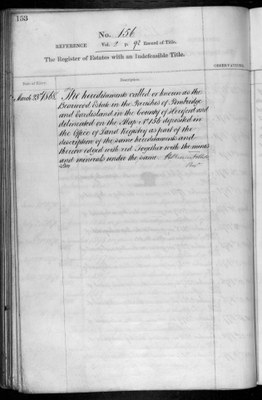 133
No. 156
REFERENCE Vol. 2 p. 92 Record of Title.
The Register of Estates with an Indefeasible Title.
Date of Entry.
Description.
OBSERVATIONS.
March 28th 1868. The hereditaments called or known as the
Broxwood Estate in the Parishes of Pembridge
and Eardisland in the County of Hereford and
delineated on the Map No 156 deposited in
the Office of Land Registry as part of the
description of the same hereditaments and
thereon edged with red Together with the mines
and minerals under the same